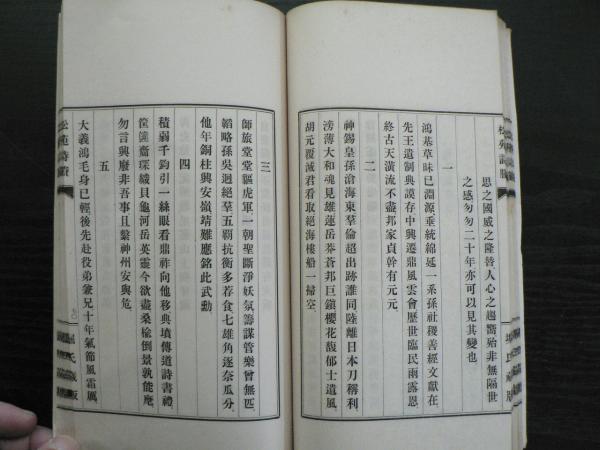 思之國威之隆替人心之趨嚮殆非無隔世
之感匆匆二十年亦可以見其變也
一
鴻基草昧已淵源垂統綿延一系孫社稷善經文獻在
先王遺制典謨存中興遷鼎風雲會歷世臨民雨露恩
終古天潢流不盡邦家貞幹有元元
二
神錫皇孫滄海東羣倫超出跡誰同陸離日本刀稱利
滂薄大和魂見雄蓮岳莽蒼邦巨鎮櫻花馥郁士遺風
胡元覆滅君看取絕海樓船一掃空
三
師旅堂堂貔虎軍一朝聖斷淨妖氛籌謀管樂曾無匹
韜略孫吳迥絕羣五霸抗衡多荐食七雄角逐奈瓜分
他年銅柱興安嶺靖難應銘此武勳
四
積弱千鈞引一絲眼看鼎祚向他移典墳傳道詩書禮
筐篚齎琛織貝龜河岳英靈今欲盡桑榆倒景孰能麾
勿言興廢非吾事且繫神州安與危
五
大義鴻毛身已輕後先赴役弟兼兄十年氣節風霜厲